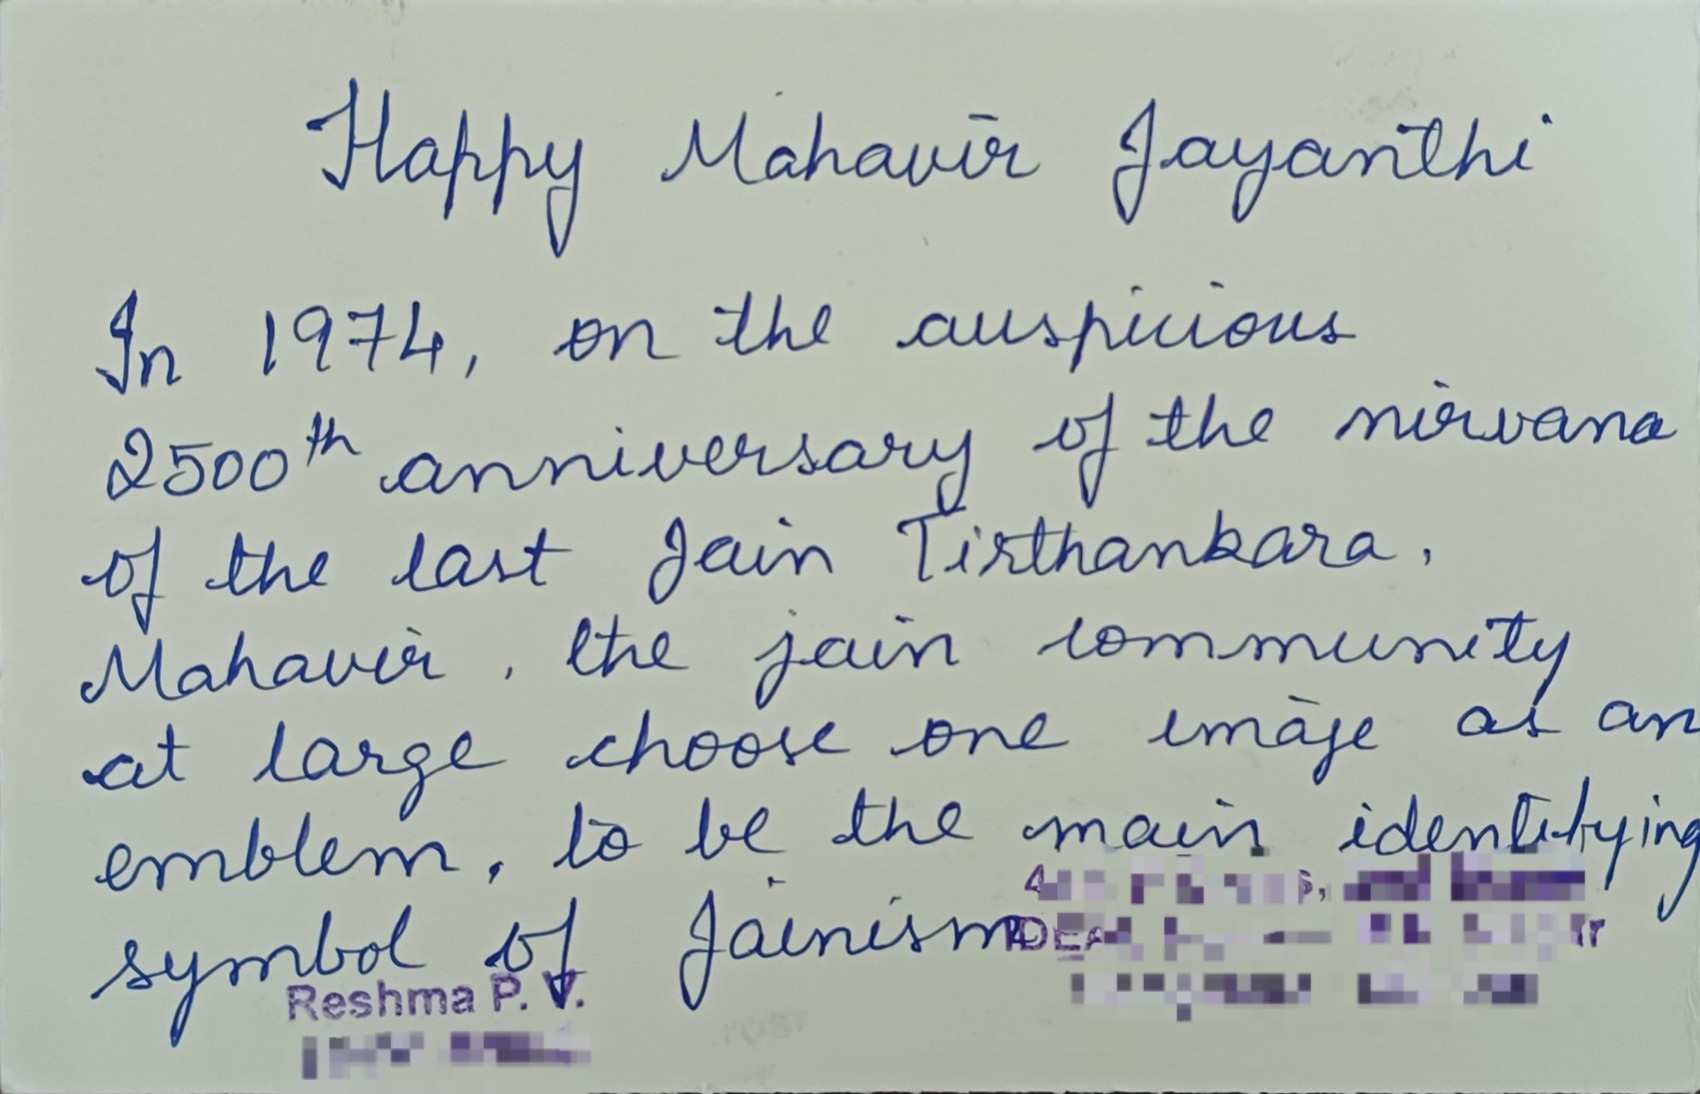 Happy Mahavir Jayanthi
In 1974, on the auspicious
2500th anniversary of the nirvana
of the last Jain Tirthankara,
Mahavir, the jain community
at large choose one image as an
emblem, to be the main identifying
symbol of Jainism
Reshma P. V.